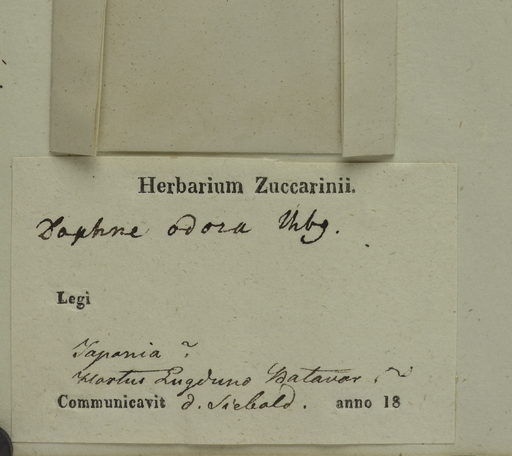 Herbarium Zuccarinii.
Daphne odora Thbg.
Legi
Japonia ?
Hortus Lugduno Batavor. ?
Communicavit d. Siebold. anno 18